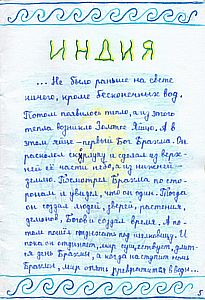 ИНДИЯ
... Не было раньше на свете
ничего, кроме бесконечных вод.
Потом появилось тепло, а из этого
тепла возникло Золотое Яйцо. А в
этом яйце - первый Бог Брахма. Он
расколол скорлупу и сделал из верх-
ней её части небо, а из нижней -
землю. Посмотрел Брахма по сто-
ронам и увидел, что он один. Тогда
он создал людей, зверей, растения,
Богов и создал время. А по-
том пошёл отдохнать под
пока он отдыхает, мир существует, длит-
ся день Брахмы, а когда наступит ночь
Брахмы, мир опять превратится в воды...
5